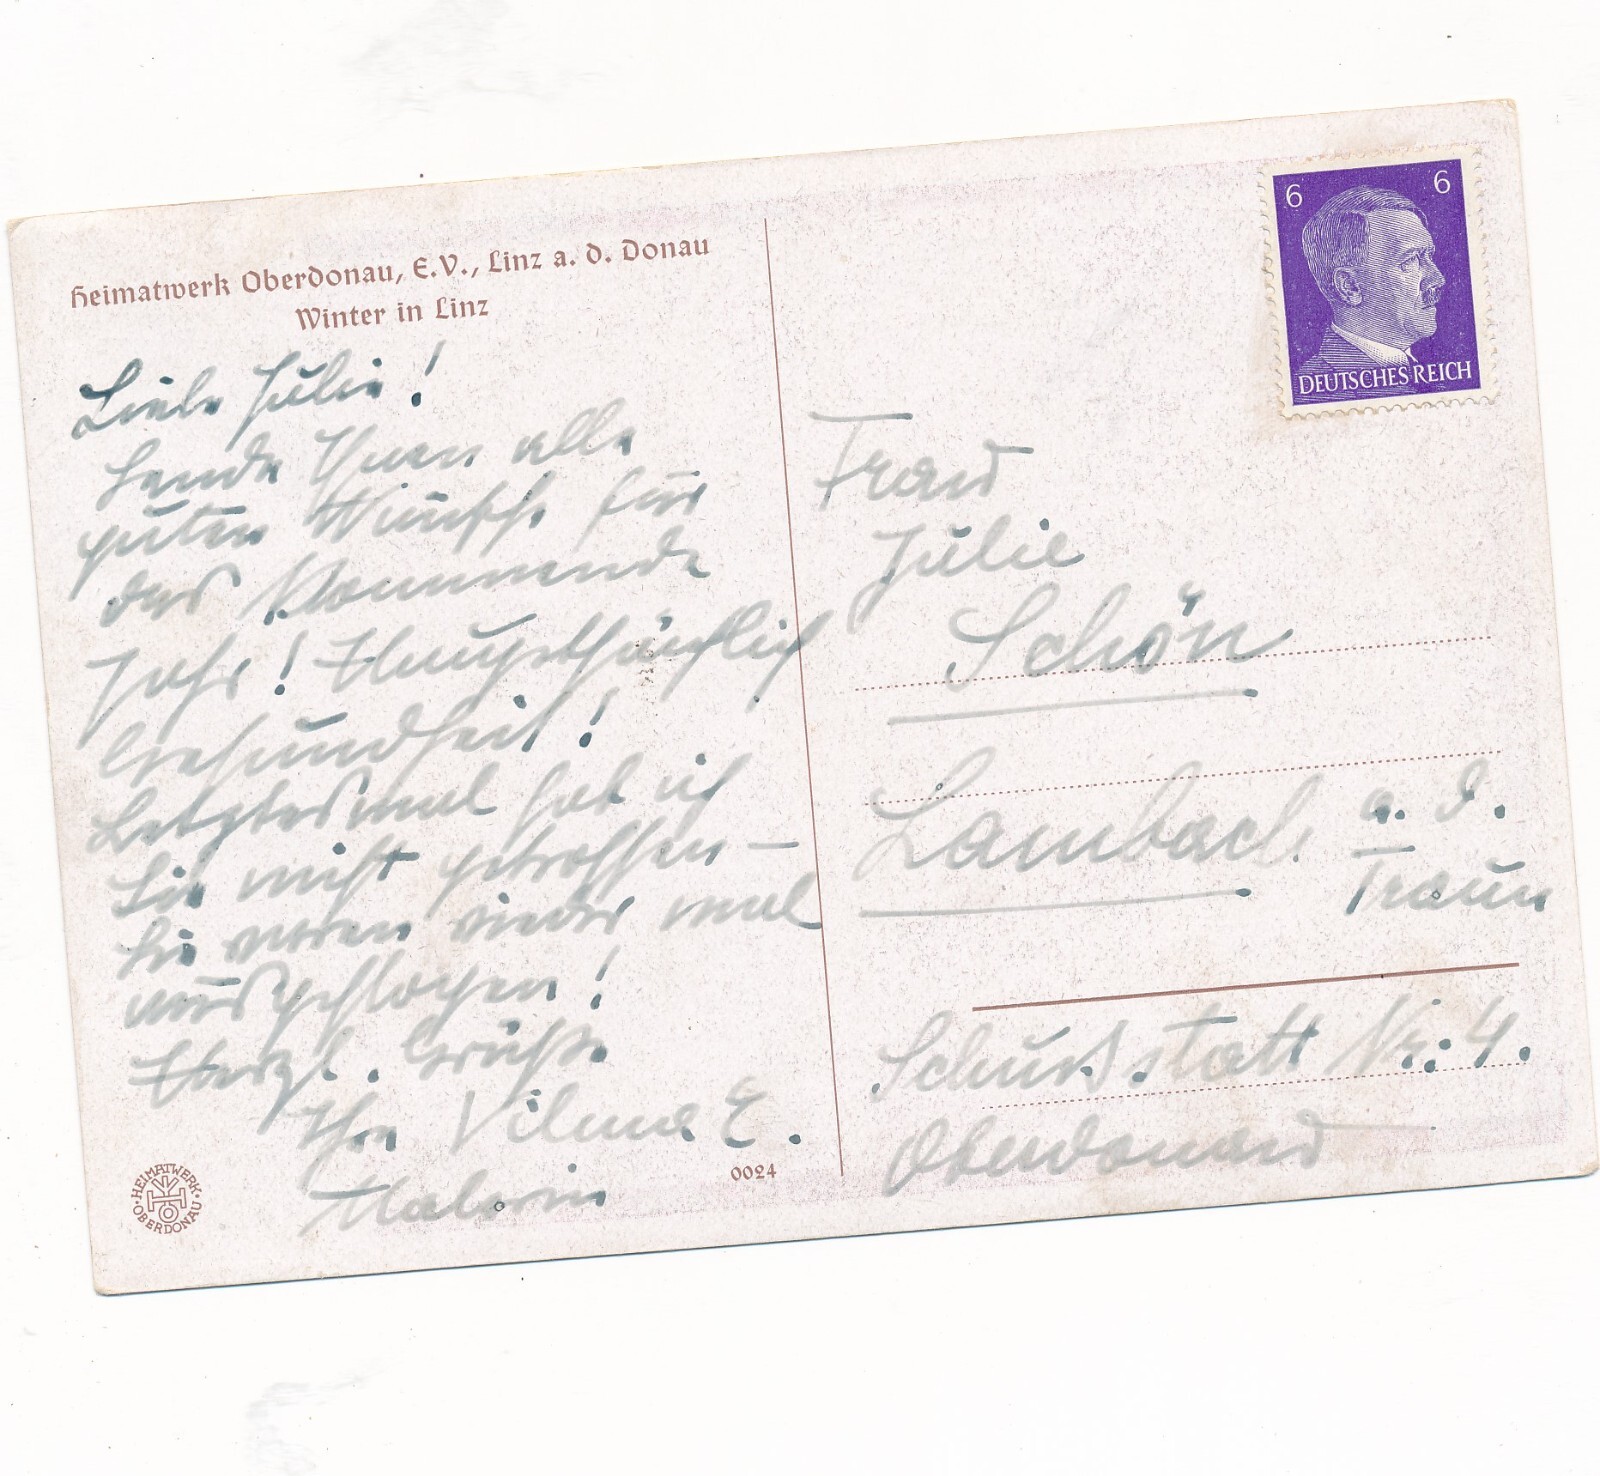 Heimatwerk Oberdonau, E.V., Linz a. d. Donau
Winter in Linz
6 6
DEUTSCHES REICH
Liebe Julie!
Sende Ihnen alle
guten Wünsche für
das Kommende
Jahr! Hauptsächlich
Gesundheit!
Letztesmal hab ich
Sie nicht getroffen —
Sie waren wieder mal
ausgeflogen!
Herzl. Grüße
Ihre Vilma E.
Frau
Julie
Schön
Lambach a. d.
Traun
Nr. 4.
Oberdonau
0024
HEIMATWERK OBERDONAU